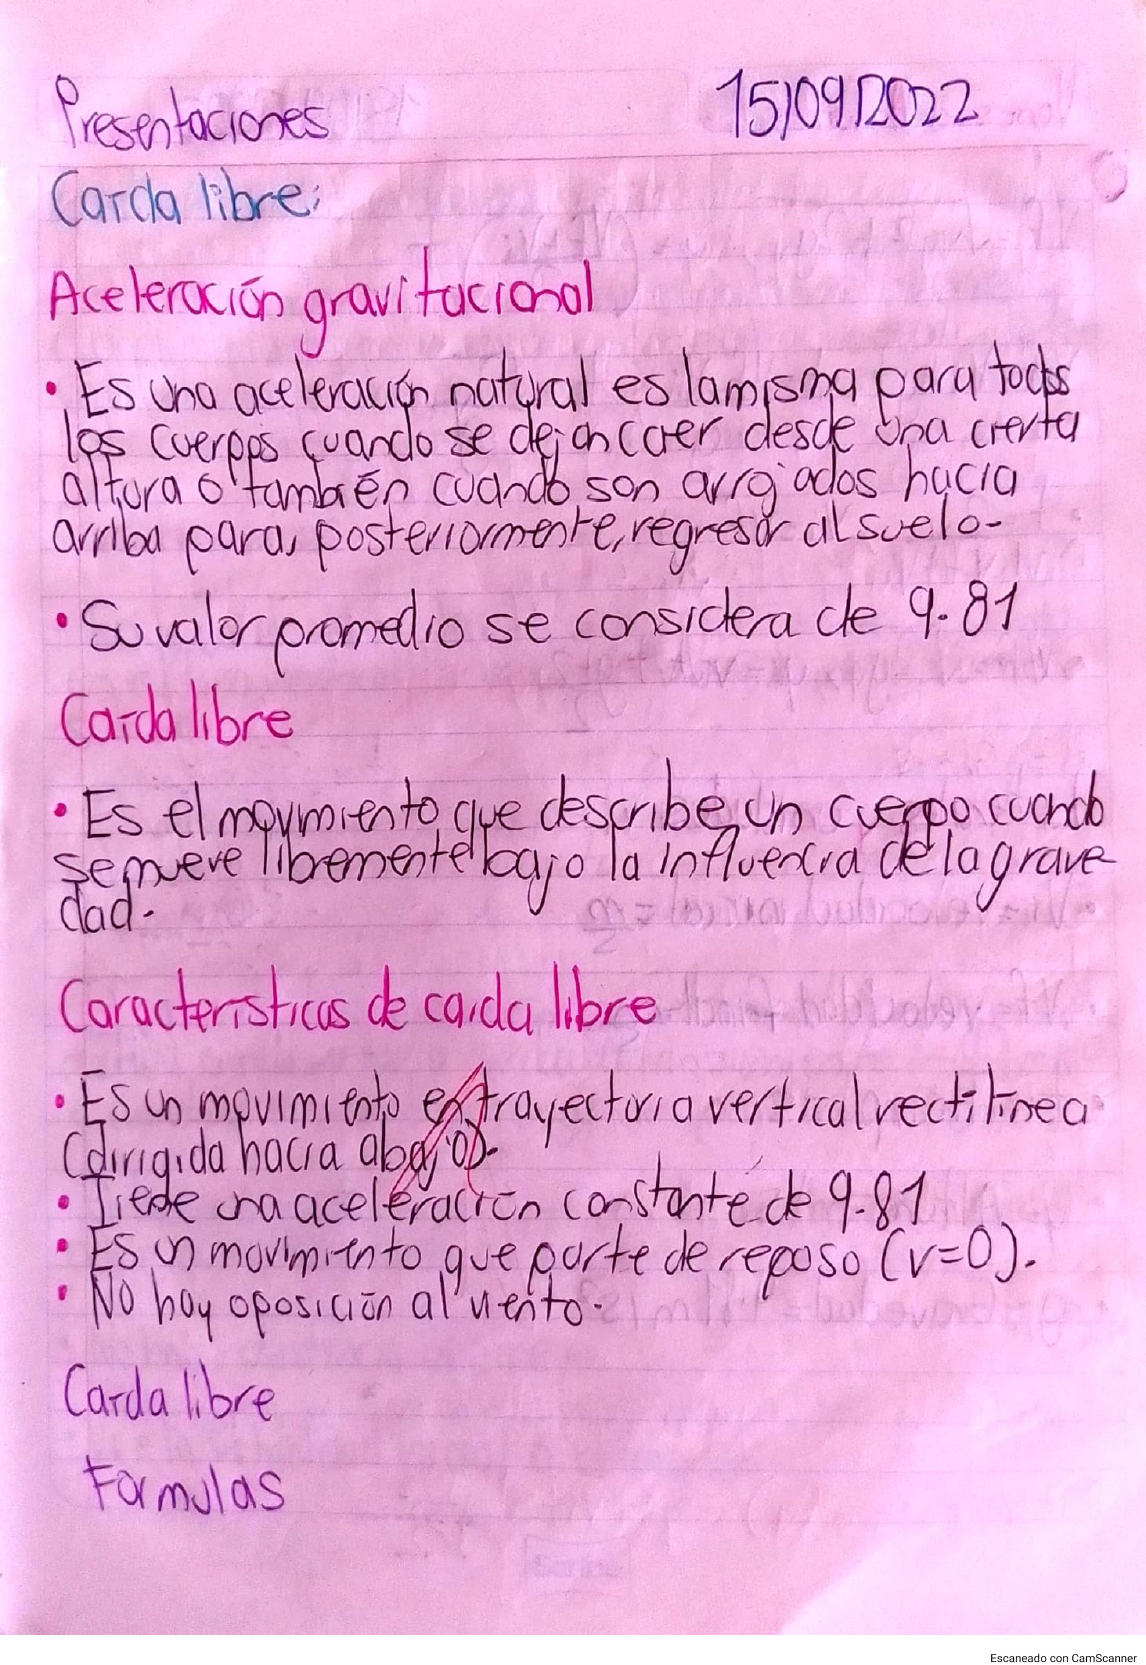 Presentaciones 15/09/2022
Caída libre:
Aceleración gravitacional
• Es una aceleración natural es la misma para todos
los cuerpos cuando se dejan caer desde una cierta
altura o también cuando son arrojados hacia
arriba para, posteriormente, regresar al suelo.
• Su valor promedio se considera de 9.81
Caída libre
• Es el movimiento que describe un cuerpo cuando
se mueve libremente bajo la influencia de la grave
dad.
Características de caída libre
• Es un movimiento en trayectoria vertical rectilínea
(dirigida hacia abajo).
• Tiene una aceleración constante de 9.81
• Es un movimiento que parte de reposo (v=0).
• No hay oposición al viento.
Caída libre
Formulas
Escaneado con CamScanner